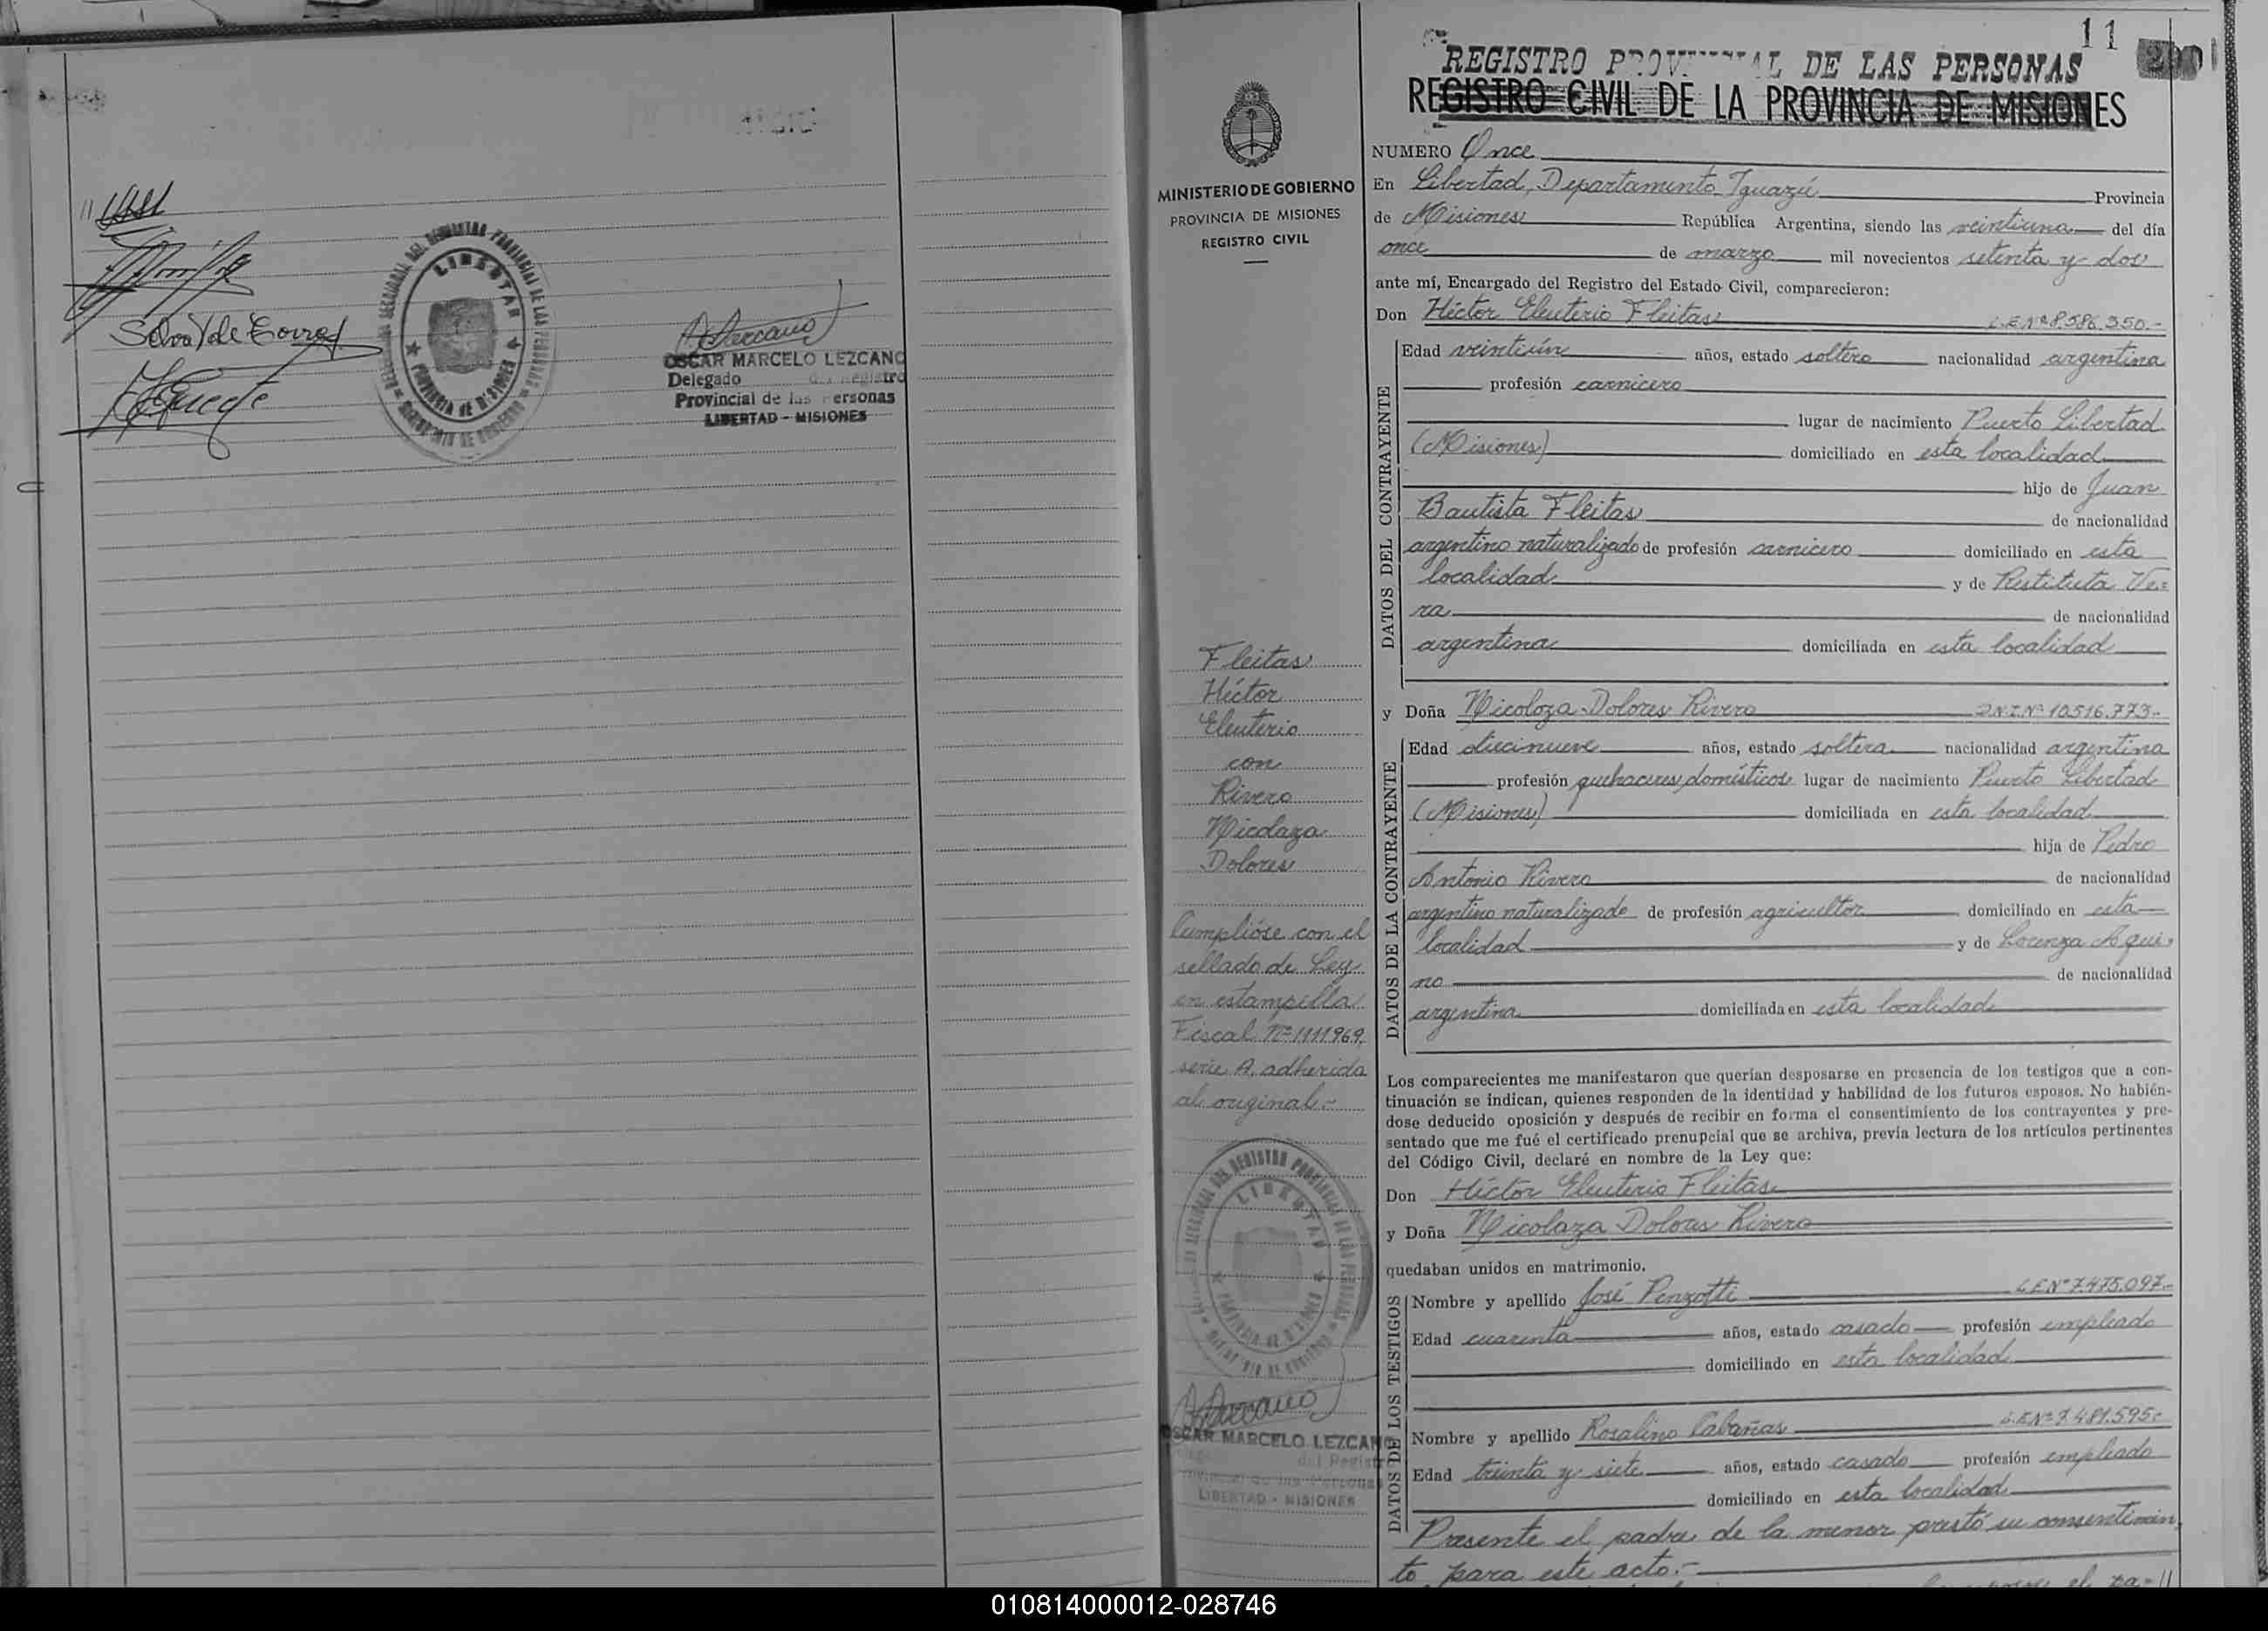 Selva Y de Torres
LIBERTAD
PROVINCIA DE MISIONES
OSCAR MARCELO LEZCANO
Delegado del Registro
Provincial de las Personas
LIBERTAD - MISIONES
MINISTERIO DE GOBIERNO
PROVINCIA DE MISIONES
REGISTRO CIVIL
Fleitas
Héctor
Eleuterio
con
Rivero
Nicolaza
Dolores
Cumplióse con el
sellado de Ley
en estampilla
Fiscal Nº 1111969,
serie A. adherida
al original.-
LIBERTAD
OSCAR MARCELO LEZCANO
del Registro
Provincial de las Personas
LIBERTAD - MISIONES
11
REGISTRO PROVINCIAL DE LAS PERSONAS
REGISTRO CIVIL DE LA PROVINCIA DE MISIONES
NUMERO Once
En Libertad, Departamento Iguazú Provincia
de Misiones República Argentina, siendo las veintiuna del día
once de marzo mil novecientos setenta y dos
ante mí, Encargado del Registro del Estado Civil, comparecieron:
Don Héctor Eleuterio Fleitas L.E.Nº 8.586.350.-
DATOS DEL CONTRAYENTE
Edad veintiún años, estado soltero nacionalidad argentina
profesión carnicero
lugar de nacimiento Puerto Libertad
(Misiones) domiciliado en esta localidad
hijo de Juan
Bautista Fleitas de nacionalidad
argentino naturalizado de profesión carnicero domiciliado en esta
localidad y de Restituta Ve=
ra de nacionalidad
argentina domiciliada en esta localidad
y Doña Nicoloza Dolores Rivero D.N.I.Nº 10.516.773.-
DATOS DE LA CONTRAYENTE
Edad diecinueve años, estado soltera nacionalidad argentina
profesión quehaceres domésticos lugar de nacimiento Puerto Libertad
(Misiones) domiciliada en esta localidad
hija de Pedro
Antonio Rivero de nacionalidad
argentino naturalizado de profesión agricultor domiciliado en esta
localidad y de Lorenza Aqui-
no de nacionalidad
argentina domiciliada en esta localidad
Los comparecientes me manifestaron que querían desposarse en presencia de los testigos que a con-
tinuación se indican, quienes responden de la identidad y habilidad de los futuros esposos. No habién-
dose deducido oposición y después de recibir en forma el consentimiento de los contrayentes y pre-
sentado que me fué el certificado prenupcial que se archiva, previa lectura de los artículos pertinentes
del Código Civil, declaré en nombre de la Ley que:
Don Héctor Eleuterio Fleitas
y Doña Nicolaza Dolores Rivero
quedaban unidos en matrimonio.
DATOS DE LOS TESTIGOS
Nombre y apellido José Penzotti L.E.Nº 7.475.097.-
Edad cuarenta años, estado casado profesión empleado
domiciliado en esta localidad
Nombre y apellido Rosalino Cabañas L.E.Nº 7.481.595.-
Edad treinta y siete años, estado casado profesión empleado
domiciliado en esta localidad
Presente el padre de la menor prestó su consentimien
to para este acto.-
010814000012-028746